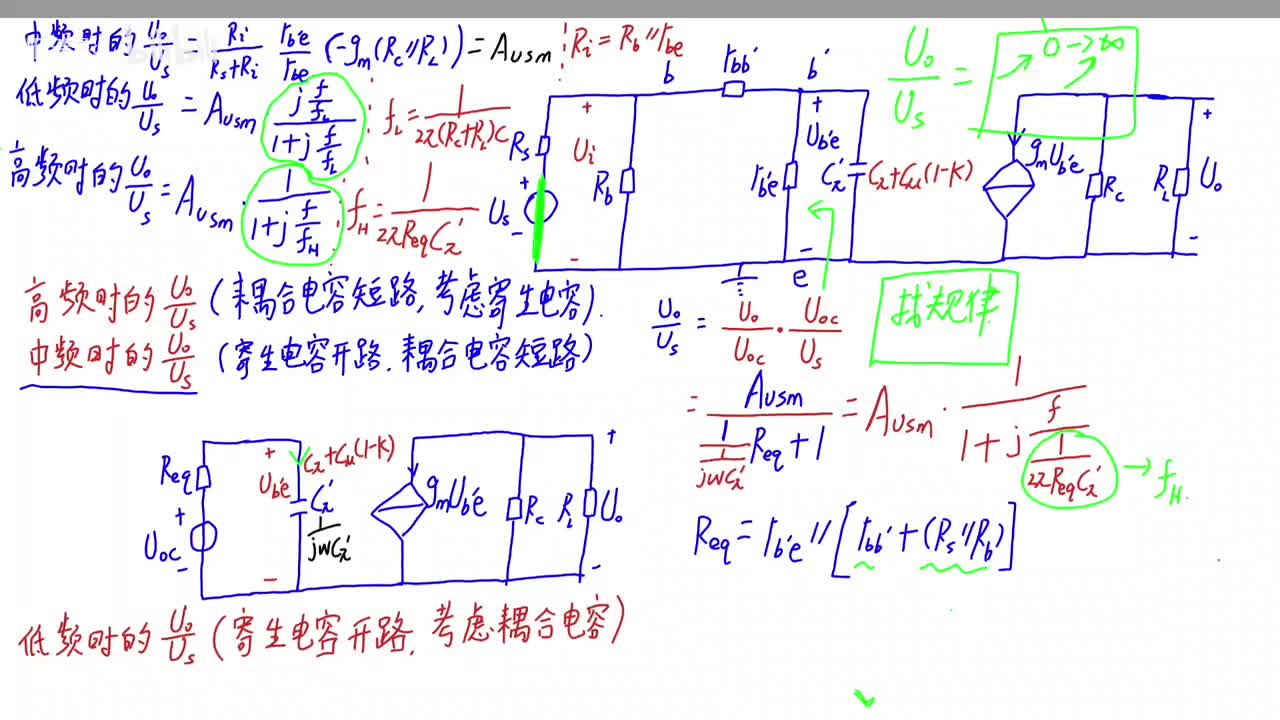 中频时的 U₀/Uₛ = Ri/(Rs+Ri) · rb'e/rbe (-gm(Rc//RL)) = Ausm
Ri = Rb//rbe
低频时的 U₀/Uₛ = Ausm · (j f/fL)/(1+j f/fL)
fL = 1/(2π(Rc+RL)C)
高频时的 U₀/Uₛ = Ausm · 1/(1+j f/fH)
fH = 1/(2πReqCπ')
U₀/Uₛ =
0->∞
b
rbb'
b'
+
+
+
+
Rs
Ui
Rb
rb'e
Ub'e
Cπ'
Cπ+Cμ(1-K)
gmUb'e
Rc
RL
U₀
Us
-
-
-
-
e
高频时的 U₀/Uₛ (耦合电容短路,考虑寄生电容).
中频时的 U₀/Uₛ (寄生电容开路.耦合电容短路)
U₀/Uₛ = U₀/Uoc · Uoc/Us
找规律
= Ausm/((1/jωCπ')... Req+1) = Ausm · 1/(1+j f/(1/(2πReqCπ')))
→ fH.
Req
+
Ub'e
Cπ+Cμ(1-K)
Cπ'
1/jωCπ'
gmUb'e
Rc
RL
+
U₀
+
Uoc
-
-
-
Req = rb'e//[rbb'+(Rs//Rb)]
低频时的 U₀/Uₛ (寄生电容开路.考虑耦合电容)